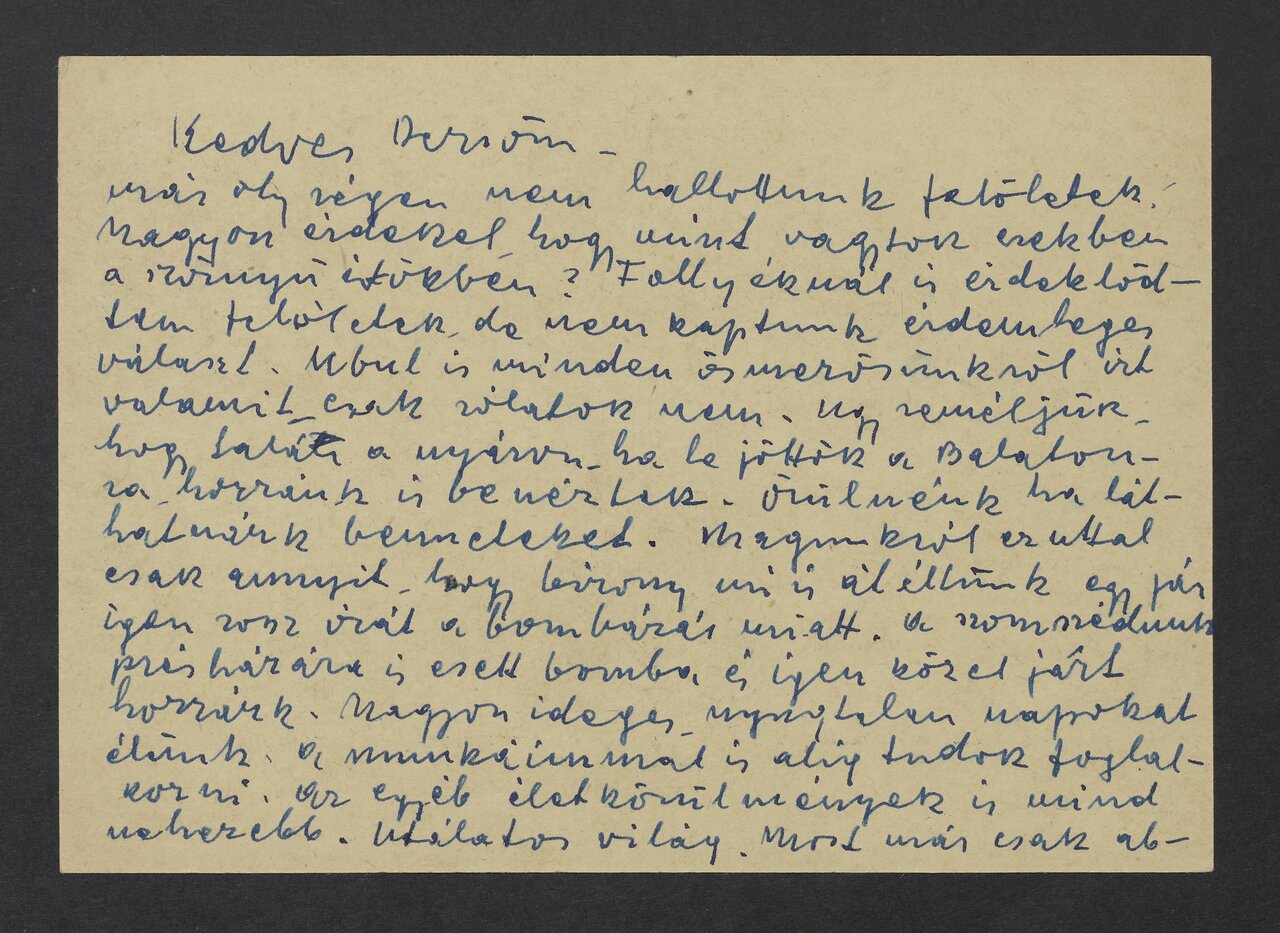 Kedves Dersőm –
már oly régen nem hallottunk felőletek.
Nagyon érdekel, hogy mint vagytok ezekben
a szörnyű időkben? Follyéknál is érdeklőd–
tem felőletek, de nem kaptunk érdemleges
választ. Ubul is minden ösmerősünkről írt
valamit, csak rólatok nem. Ugy reméljük,
hogy talán a nyáron, ha le jöttök a Balaton–
ra, hozzánk is benéztek. Örülnénk ha lát–
hatnánk benneteket. Magunkról ezuttal
csak annyit, hogy bizony mi is átéltünk egy pár
igen rosz órát a bombázás miatt. A szomszédunk
présházára is esett bomba, és igen közel járt
hozzánk. Nagyon ideges, nyugtalan napokat
élünk. A munkáimmal is alig tudok foglal–
kozni. Az egyéb életkörülmények is mind
nehezebb. Utálatos világ. Most már csak ab–